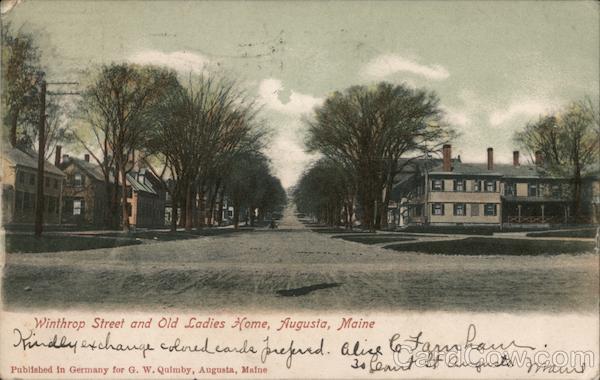 Winthrop Street and Old Ladies Home, Augusta, Maine
Kindly exchange colored cards prefered. Alice C. Farnham.
30 Court St Augusta Maine
Published in Germany for G. W. Quimby, Augusta, Maine
CardCow.com